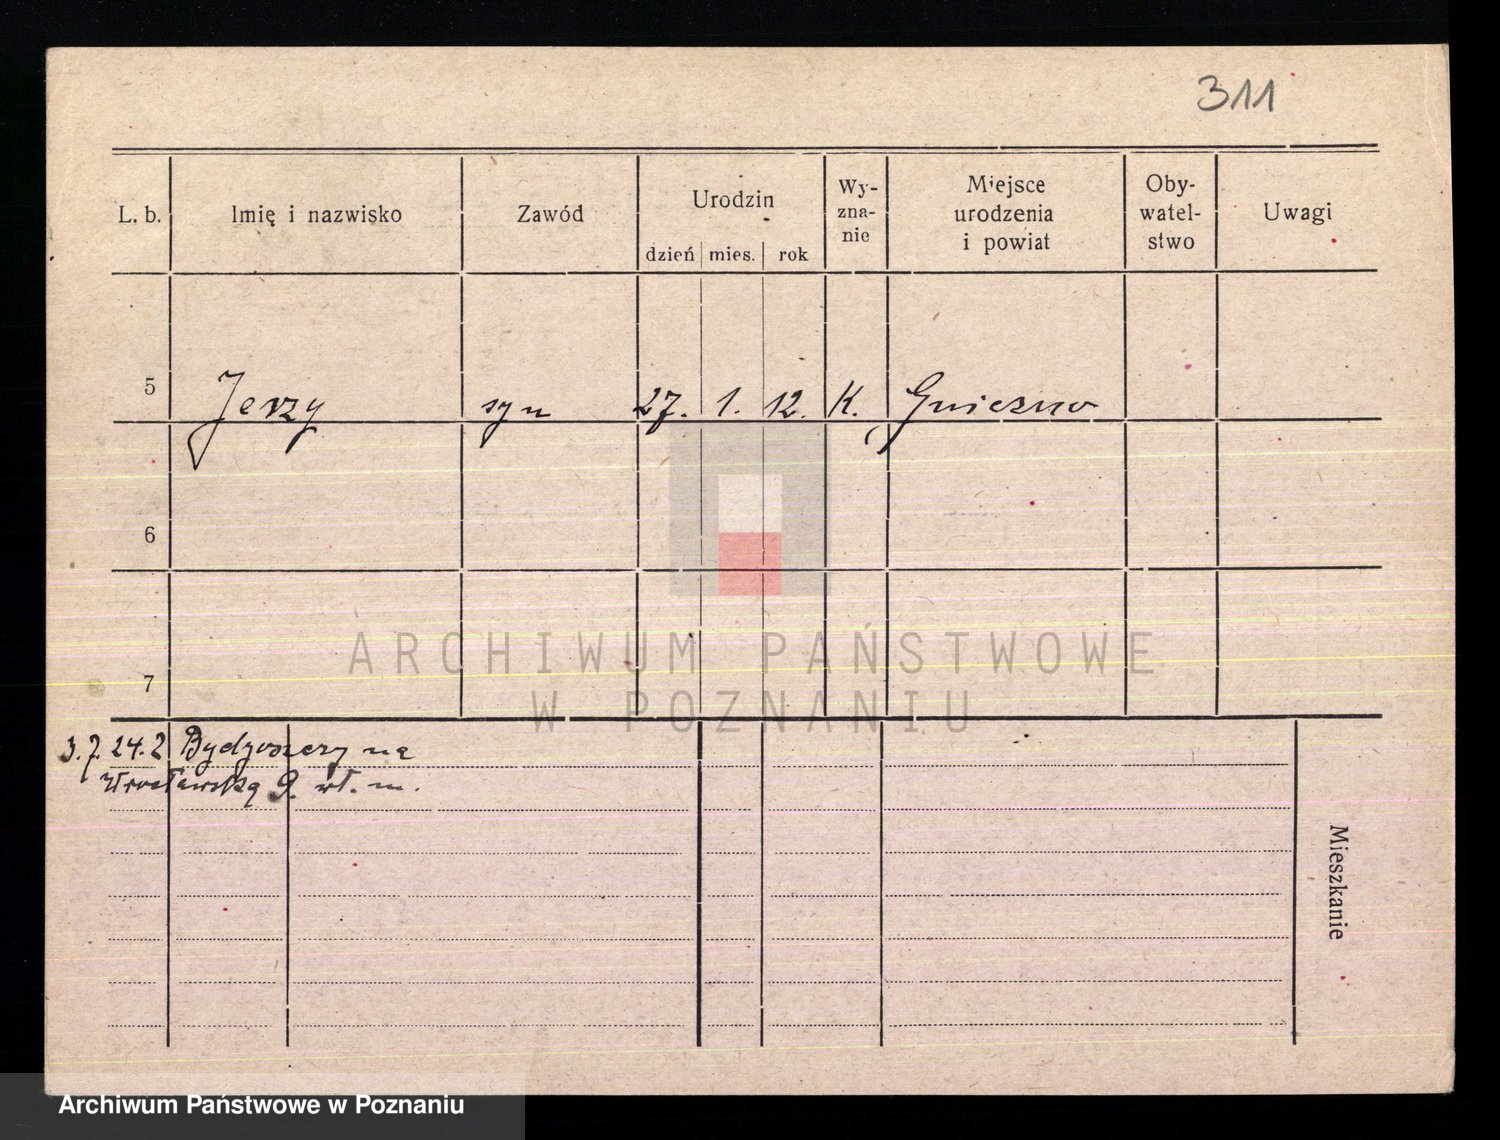 311
L. b. Imię i nazwisko Zawód Urodzin dzień mies. rok Wy-zna-nie Miejsce urodzenia i powiat Oby-watel-stwo Uwagi
5 Jerzy syn 27. 1. 12. K. Gniezno
6
7
3.7.24. Z Bydgoszczy na
Wrocławską 9. wł. m.
Mieszkanie
ARCHIWUM PAŃSTWOWE
W POZNANIU
Archiwum Państwowe w Poznaniu